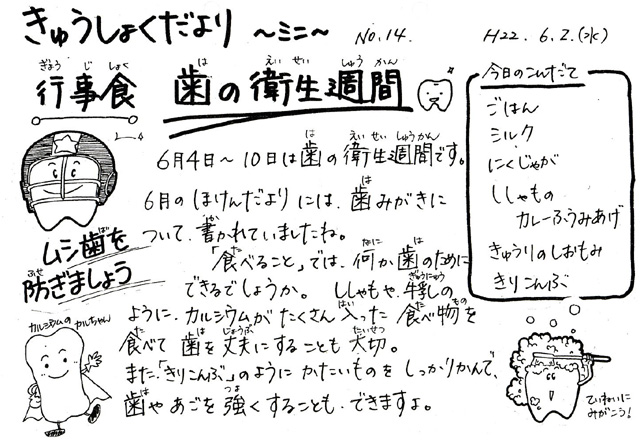 きゅうしょくだより ~ミニ~ No.14. H22. 6. 2.(水)
行事食 歯の衛生週間
6月4日~10日は歯の衛生週間です。
6月のほけんだよりには、歯みがきに
ついて、書かれていましたね。
「食べること」では、何か歯のために
できるでしょうか。 ししゃもや、牛乳の
ように、カルシウムがたくさん入った食べ物を
食べて歯を丈夫にすることも大切。
また、「きりこんぶ」のようにかたいものをしっかりかんで、
歯やあごを強くすることも、できますよ。
ムシ歯を
防ぎましょう
カルシウムのカルちゃん
今日のこんだて
ごはん
ミルク
にくじゃが
ししゃもの
カレーふうみあげ
きゅうりのしおもみ
きりこんぶ
ていねいに
みがこう!